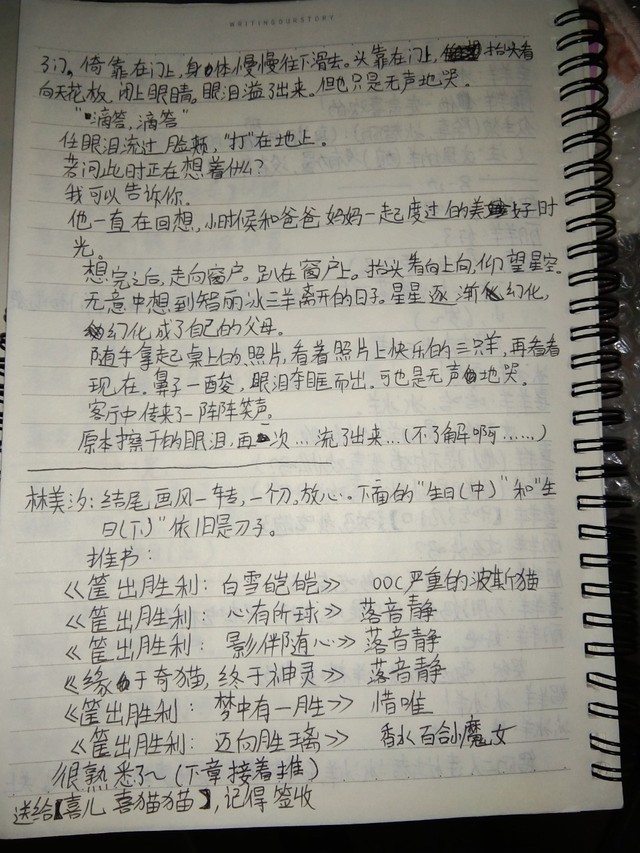 WRITINGOURSTORY
了门。倚靠在门上,身体慢慢往下滑去。头靠在门上,抬头看
向天花板,闭上眼睛。眼泪溢了出来。但也只是无声地哭。
“滴答,滴答”
任眼泪流过脸颊,“打”在地上。
若问此时正在想着什么?
我可以告诉你.
他一直在回想,小时候和爸爸妈妈一起度过的美好时
光。
想完之后,走向窗户。趴在窗户上。抬头看向上向,仰望星空.
无意中想到智丽冰三羊离开的日子。星星逐渐幻化,
幻化成了自己的父母。
随手拿起桌上的照片,看着照片上快乐的三只羊,再看看
现在。鼻子一酸,眼泪夺眶而出。可也是无声地哭。
客厅中传来了一阵阵笑声。
原本擦干的眼泪,再一次…流了出来…(不了解啊……)
林美汐:结尾画风一转,一个刀。放心。下面的“生日(中)”和“生
日(下)”依旧是刀子。
推书:
《筐出胜利:白雪皑皑》 OOC严重的波斯猫
《筐出胜利:心有所球》 落音静
《筐出胜利:影伴随心》 落音静
《缘于奇猫,终于神灵》 落音静
《筐出胜利:梦中有一胜》 惜唯
《筐出胜利:迈向胜璃》 香水百合小魔女
很熟悉了~(下章接着推)
送给【喜儿 喜猫猫】,记得签收